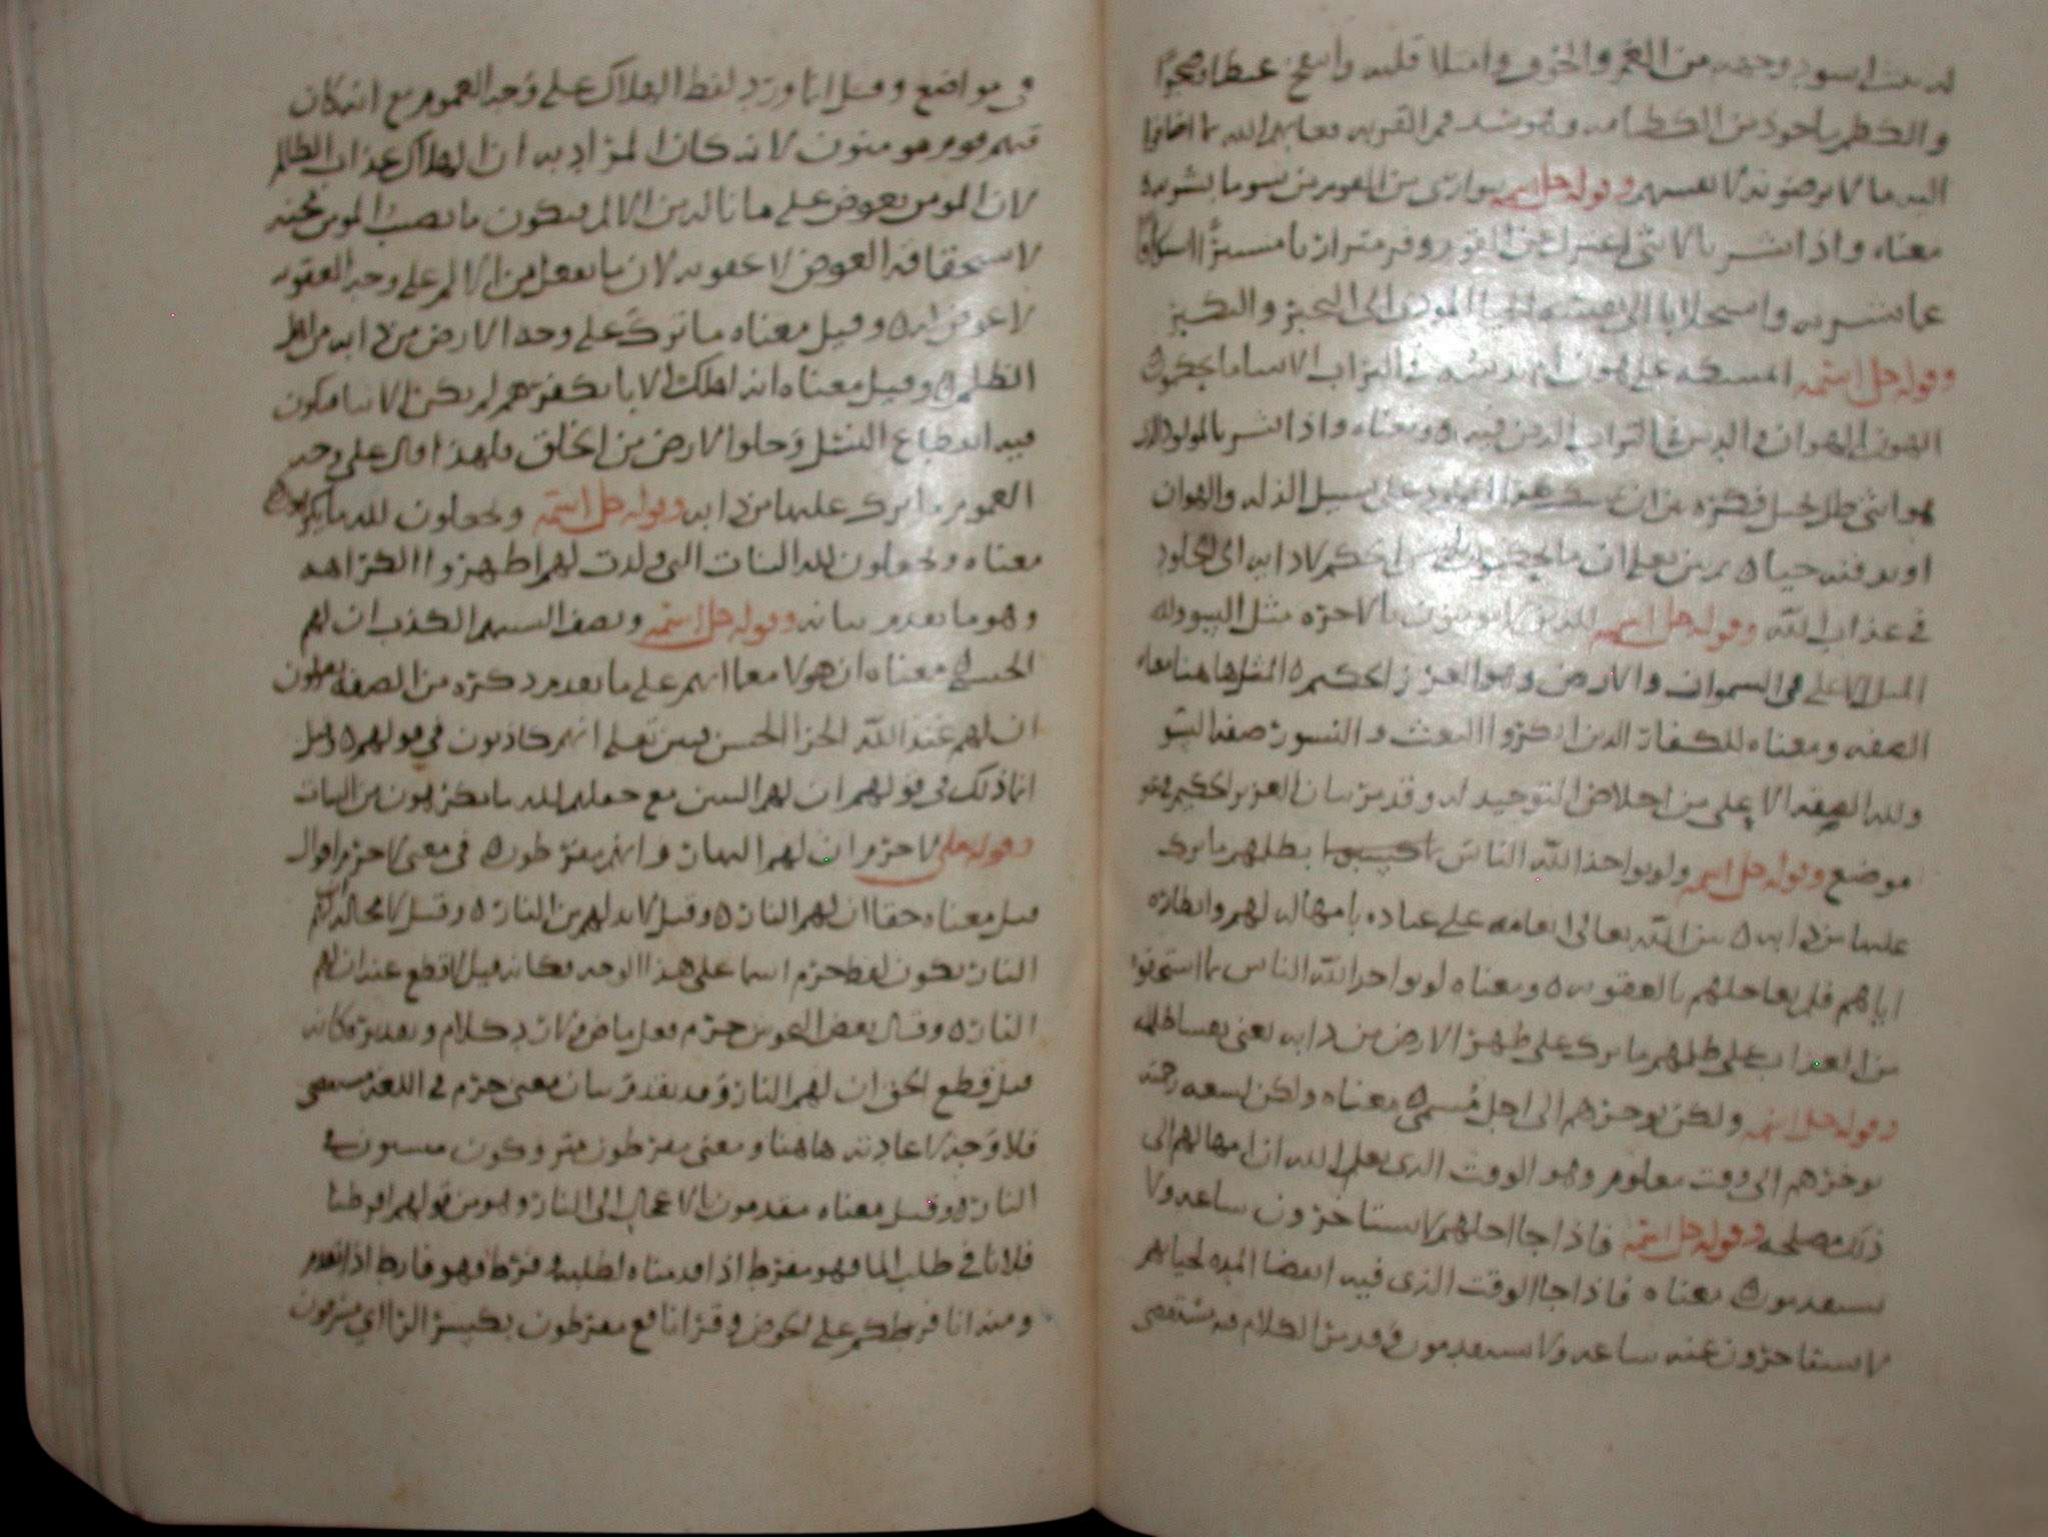 وجهه من الغم والحزن وامتلا قلبه
والكظم ماخوذ من الكظامه وهو شد فم القربه فعابهم الله بما اضافوا
اليه ما لا يرضونه لانفسهم وقوله جل اسمه يتوارى من القوم من سوء ما بشر به
معناه واذا بشر بالانثى اعتزل عن القوم
وقوله جل اسمه ايمسكه على هون ام يدسه في التراب الا ساء ما يحكمون
الهون الهوان والدس في التراب الدفن فيه ومعناه واذا بشر بالمولود
هو انثى ظل على سبيل الذل والهوان
او يدفنه حياه ثم بين تعلى ان ما يحكمون
في عذاب الله وقوله جل اسمه للذين لا يومنون بالاخره مثل السوء ولله
المثل الاعلى في السموات والارض وهو العزيز الحكيم المثل هاهنا معناه
الصفه ومعناه للكفار الذين انكروا البعث والنشور صفه السوء
ولله الصفه الاعلى من اخلاص التوحيد له وقد مر بيان العزيز الحكيم في غير
موضع وقوله جل اسمه ولو يواخذ الله الناس بظلمهم ما ترك
عليها من دابه من الله تعالى انعامه على عباده بامهاله لهم وانظاره
اياهم فلم يعاجلهم بالعقوبه ومعناه لو يواخذ الله الناس بما استحقوا
من العذاب على ظلمهم ما ترك على ظهر الارض من دابه يعني نفسا ظالمه
وقوله جل اسمه ولكن يوخرهم الى اجل مسمى معناه ولكن لسعه رحمته
يوخرهم الى وقت معلوم وهو الوقت الذي يعلم الله ان امهالهم الى
ذلك مصلحه وقوله جل اسمه فاذا جا اجلهم لا يستاخرون ساعه ولا
يستقدمون معناه فاذا جا الوقت الذي فيه انقضا المده لحياتهم
لا يستاخرون عنه ساعه ولا يستقدمون وقد مر الكلام فيه مستقصى
في مواضع وقيل انما ورد لفظ الهلاك على وجه العموم مع انه كان
فيهم قوم مومنون لانه كان المراد به ان الهلاك عذاب الظالم
لان المومن يعوض على ما ناله من الالم فيكون ما يصيب المومن محنه
لاستحقاقه العوض لا عقوبه لان ما يفعل من الالم على وجه العقوبه
لا عوض له وقيل معناه ما ترك على وجه الارض من دابه من اهل
الظلم وقيل معناه انه لو اهلك الابا بكفرهم لم يكن الابنا فيكون
فيه انقطاع النسل وخلو الارض من الخلق فلهذا قال على وجه
العموم ما ترك عليها من دابه وقوله جل اسمه ويجعلون لله ما يكرهون
معناه ويجعلون لله البنات التي ولدت لهم اظهروا الكراهه
وهو ما تقدم بيانه وقوله جل اسمه وتصف السنتهم الكذب ان لهم
الحسنى معناه ان هولا معما انهم على ما تقدم ذكره من الصفه يقولون
ان لهم عند الله الجزا الحسن فبين تعلى انهم كاذبون في قولهم وقيل
انما ذلك في قولهم ان لهم البنين مع جعلهم لله ما يكرهون من البنات
وقوله تعلى لا جرم ان لهم النار وانهم مفرطون في معنى لا جرم اقوال
قيل معناه حقا ان لهم النار وقيل لا بد لهم من النار وقيل لا محاله ان لهم
النار يكون لفظ جرم اسما على هذا الوجه فكانه قيل لا قطع عند ان لهم
النار وقال بعض النحويين جرم فعل ماض ولا رد كلام وتقديره كانه
قيل قطع الحق ان لهم النار وقد تقدم بيان معنى جرم في اللغه مستقصى
فلا وجه لاعادته هاهنا ومعنى مفرطون متروكون منسيون في
النار وقيل معناه مقدمون بالاعجال الى النار وهو من قولهم افرطنا
فلانا في طلب الما فهو مفرط اذا قدمناه لطلبه وفرط فهو فارط اذا تقدم
ومنه انا فرطكم على الحوض وقرا نافع مفرطون بكسر الرا اي مسرفون